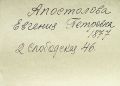 Апостолова
Евгения Петровна
1877
2 Слободская 46.